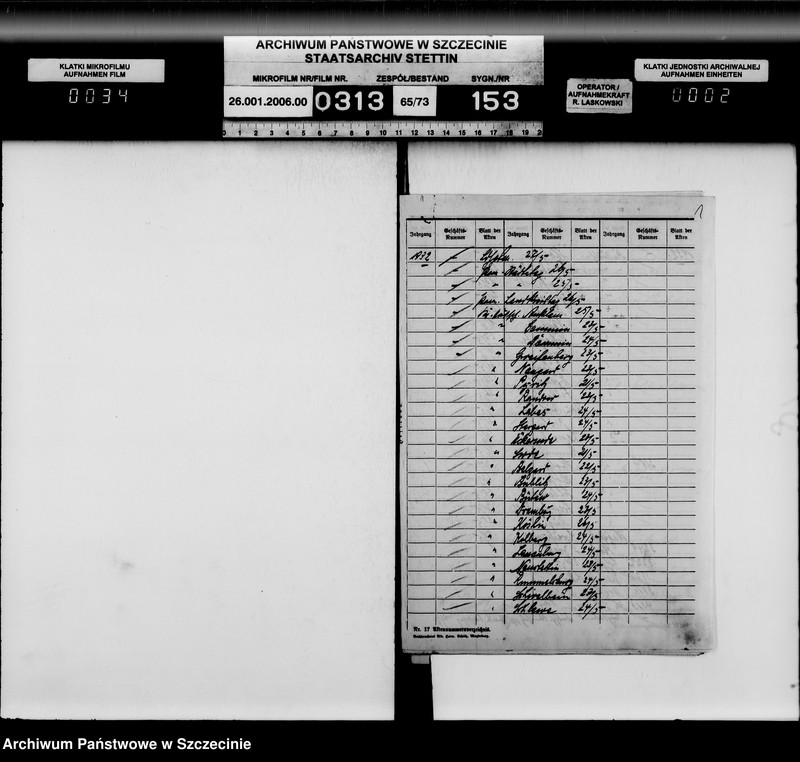 ARCHIWUM PAŃSTWOWE W SZCZECINIE
STAATSARCHIV STETTIN
MIKROFILM NR/FILM NR. ZESPÓŁ/BESTAND SYGN./NR
26.001.2006.00 0313 65/73 153
0 1 2 3 4 5 6 7 8 9 10 11 12 13 14 15 16 17 18 19 20
KLATKI MIKROFILMU
AUFNAHMEN FILM
0034
OPERATOR /
AUFNAHMEKRAFT
R. LASKOWSKI
KLATKI JEDNOSTKI ARCHIWALNEJ
AUFNAHMEN EINHEITEN
0002
1
Jahrgang Geschäfts-Nummer Blatt der Akten Jahrgang Geschäfts-Nummer Blatt der Akten Jahrgang Geschäfts-Nummer Blatt der Akten
1932 27/5
Pom. Städtetag 26/5
" " 25/5
Pom. Landkreistag 26/5
Anklam 25/5
" Cammin 23/5
" Demmin 24/5
" Greifenberg 23/5
" Naugard 23/5
" Pyritz 21/5
" Randow 23/5
" Labes 24/5
" Stargard 24/5
" Ückermde 23/5
" 21/5
" Belgard 22/5
" Bublitz 23/5
" Bütow 24/5
" Dramburg 23/5
" Köslin 26/5
" Kolberg 24/5
" Lauenburg 24/5
" Neustettin 23/5
" Rummelsburg 24/5
" Schivelbein 23/5
" Schlawe 24/5
Nr. 17 Aktennummerverzeichnis.
Archiwum Państwowe w Szczecinie